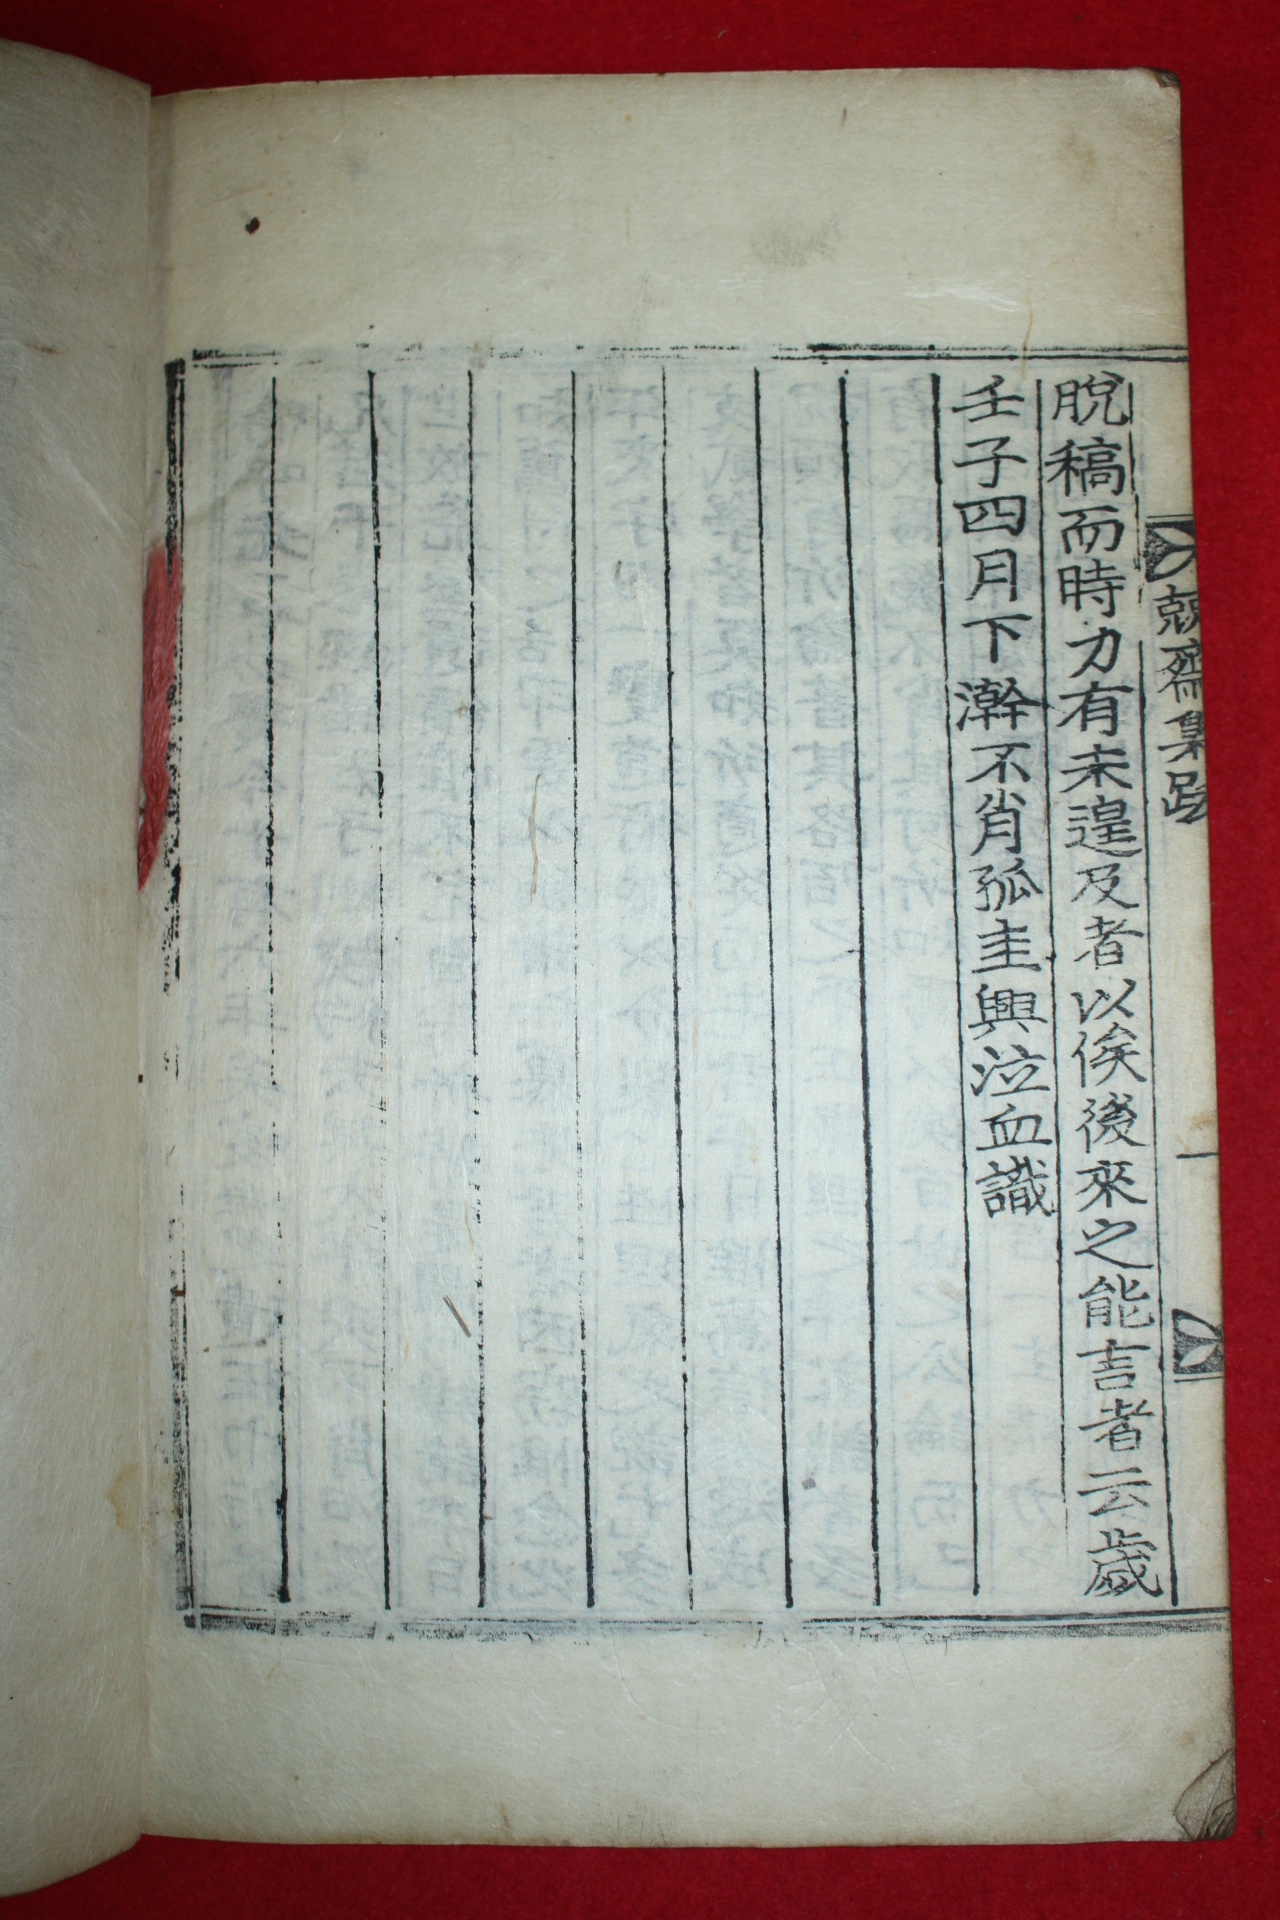 脫稿而時力有未遑及者以俟後來之能言者云歲
壬子四月下澣不肖孤圭興泣血識
兢齋集跋
一